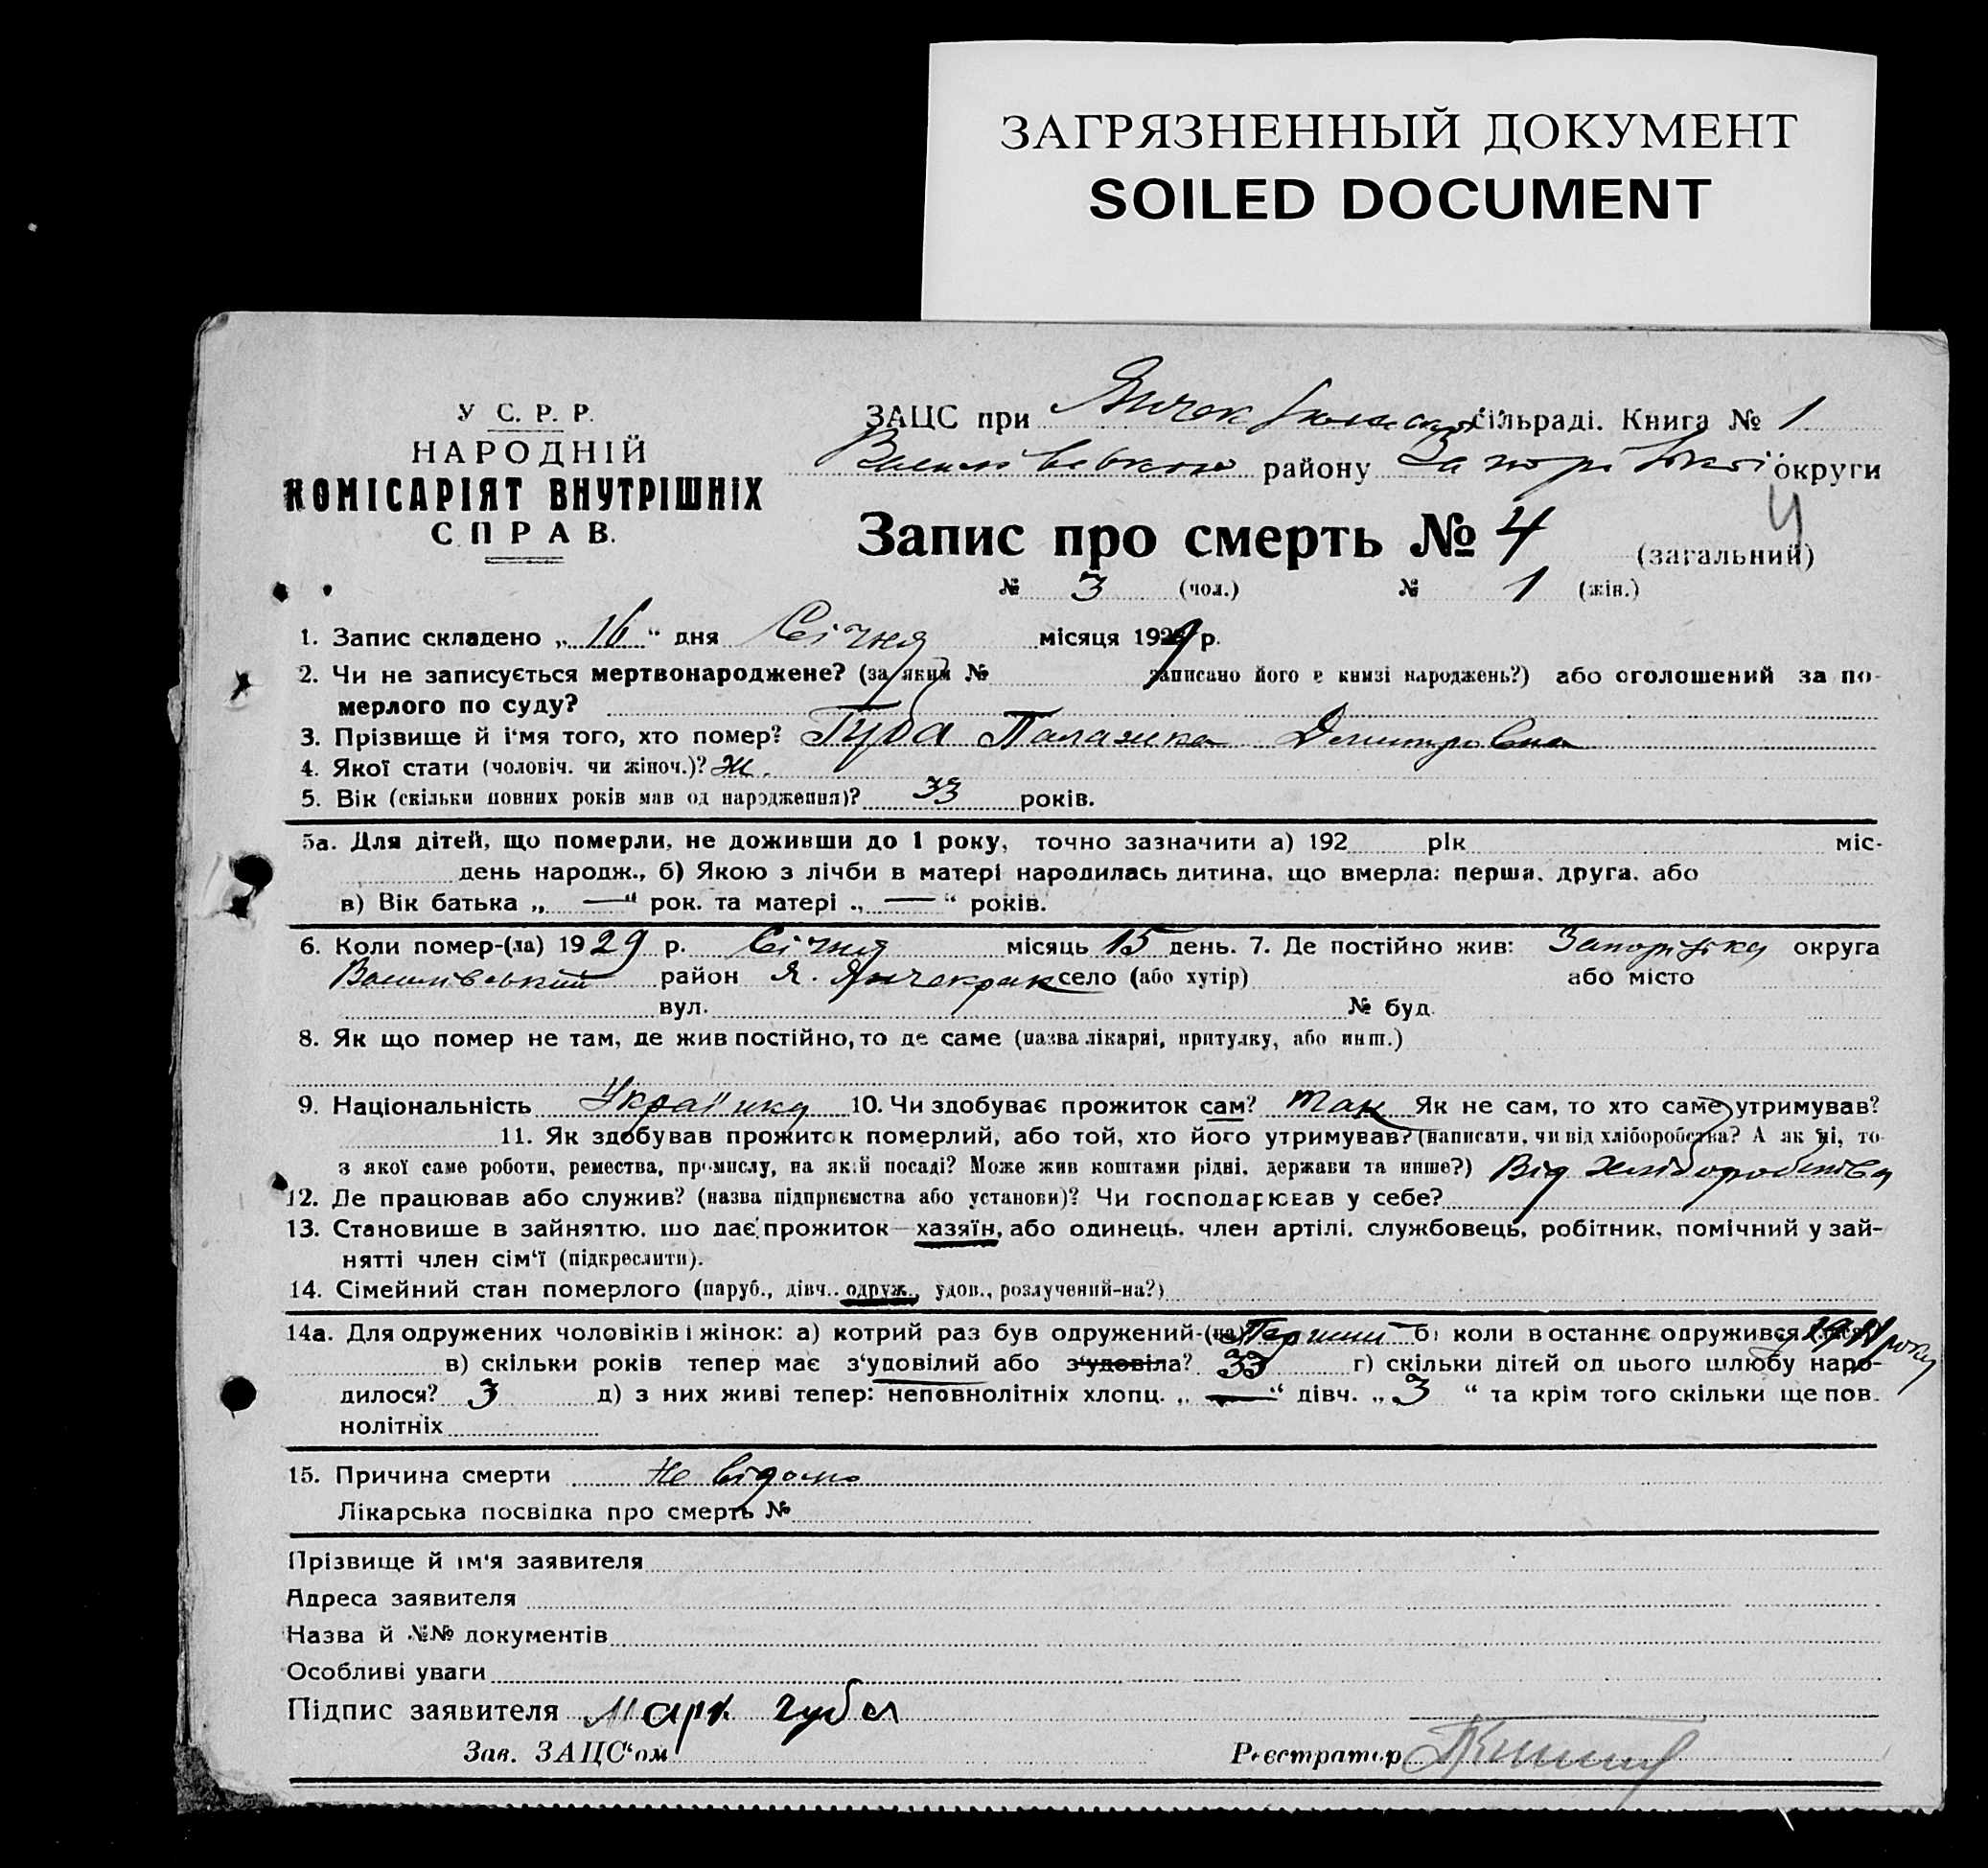 ЗАГРЯЗНЕННЫЙ ДОКУМЕНТ
SOILED DOCUMENT
У С. Р. Р.
НАРОДНІЙ
КОМІСАРІЯТ ВНУТРІШНІХ
СПРАВ.
ЗАЦС при сільраді. Книга № 1
району Запорізької округи
Запис про смерть № 4 (загальний) 4
№ 3 (чол.) № 1 (жін.)
1. Запис складено „ 16 “ дня Січня місяця 1929 р.
2. Чи не записується мертвонароджене? (за яким № записано його в книзі народжень?) або оголошений за по-
мерлого по суду?
3. Прізвище й і‘мя того, хто помер? Губа Палажка Дмитровна
4. Якої стати (чоловіч. чи жіноч.)? Ж.
5. Вік (скільки повних років мав од народження)? 33 років.
5а. Для дітей, що померли, не доживши до 1 року, точно зазначити а) 192 рік міс-
день народж., б) Якою з лічби в матері народилась дитина, що вмерла: перша, друга, або
в) Вік батька „ — “ рок. та матері „ — “ років.
6. Коли помер-(ла) 1929 р. Січня місяць 15 день. 7. Де постійно жив: Запорізька округа
Василівський район Я. Янчекрак село (або хутір) або місто
вул. № буд.
8. Як що помер не там, де жив постійно, то де саме (назва лікарні, притулку, або инш.)
9. Національність Українка 10. Чи здобуває прожиток сам? так Як не сам, то хто саме утримував?
11. Як здобував прожиток померлий, або той, хто його утримував? (написати, чи від хліборобства? А як ні, то
з якої саме роботи, ремества, промислу, на якій посаді? Може жив коштами рідні, держави та инше?) Від хліборобства
12. Де працював або служив? (назва підприємства або установи)? Чи господарював у себе?
13. Становище в зайняттю, що дає прожиток—хазяїн, або одинець, член артілі, службовець, робітник, помічний у зай-
нятті член сім‘ї (підкреслити).
14. Сімейний стан померлого (паруб., дівч., одруж., удов., розлучений-на?)
14а. Для одружених чоловіків і жінок: а) котрий раз був одружений-(на) Перший б) коли востаннє одружився року
в) скільки років тепер має з‘удовілий або з‘удовіла? 33 г) скільки дітей од цього шлюбу наро-
дилося? 3 д) з них живі тепер: неповнолітніх хлопц. „ — “ дівч. „ 3 “ та крім того скільки ще пов-
нолітніх
15. Причина смерти Не відомо
Лікарська посвідка про смерть №
Прізвище й ім‘я заявителя
Адреса заявителя
Назва й №№ документів
Особливі уваги
Підпис заявителя Марк губа
Зав. ЗАЦС‘ом Реєстратор